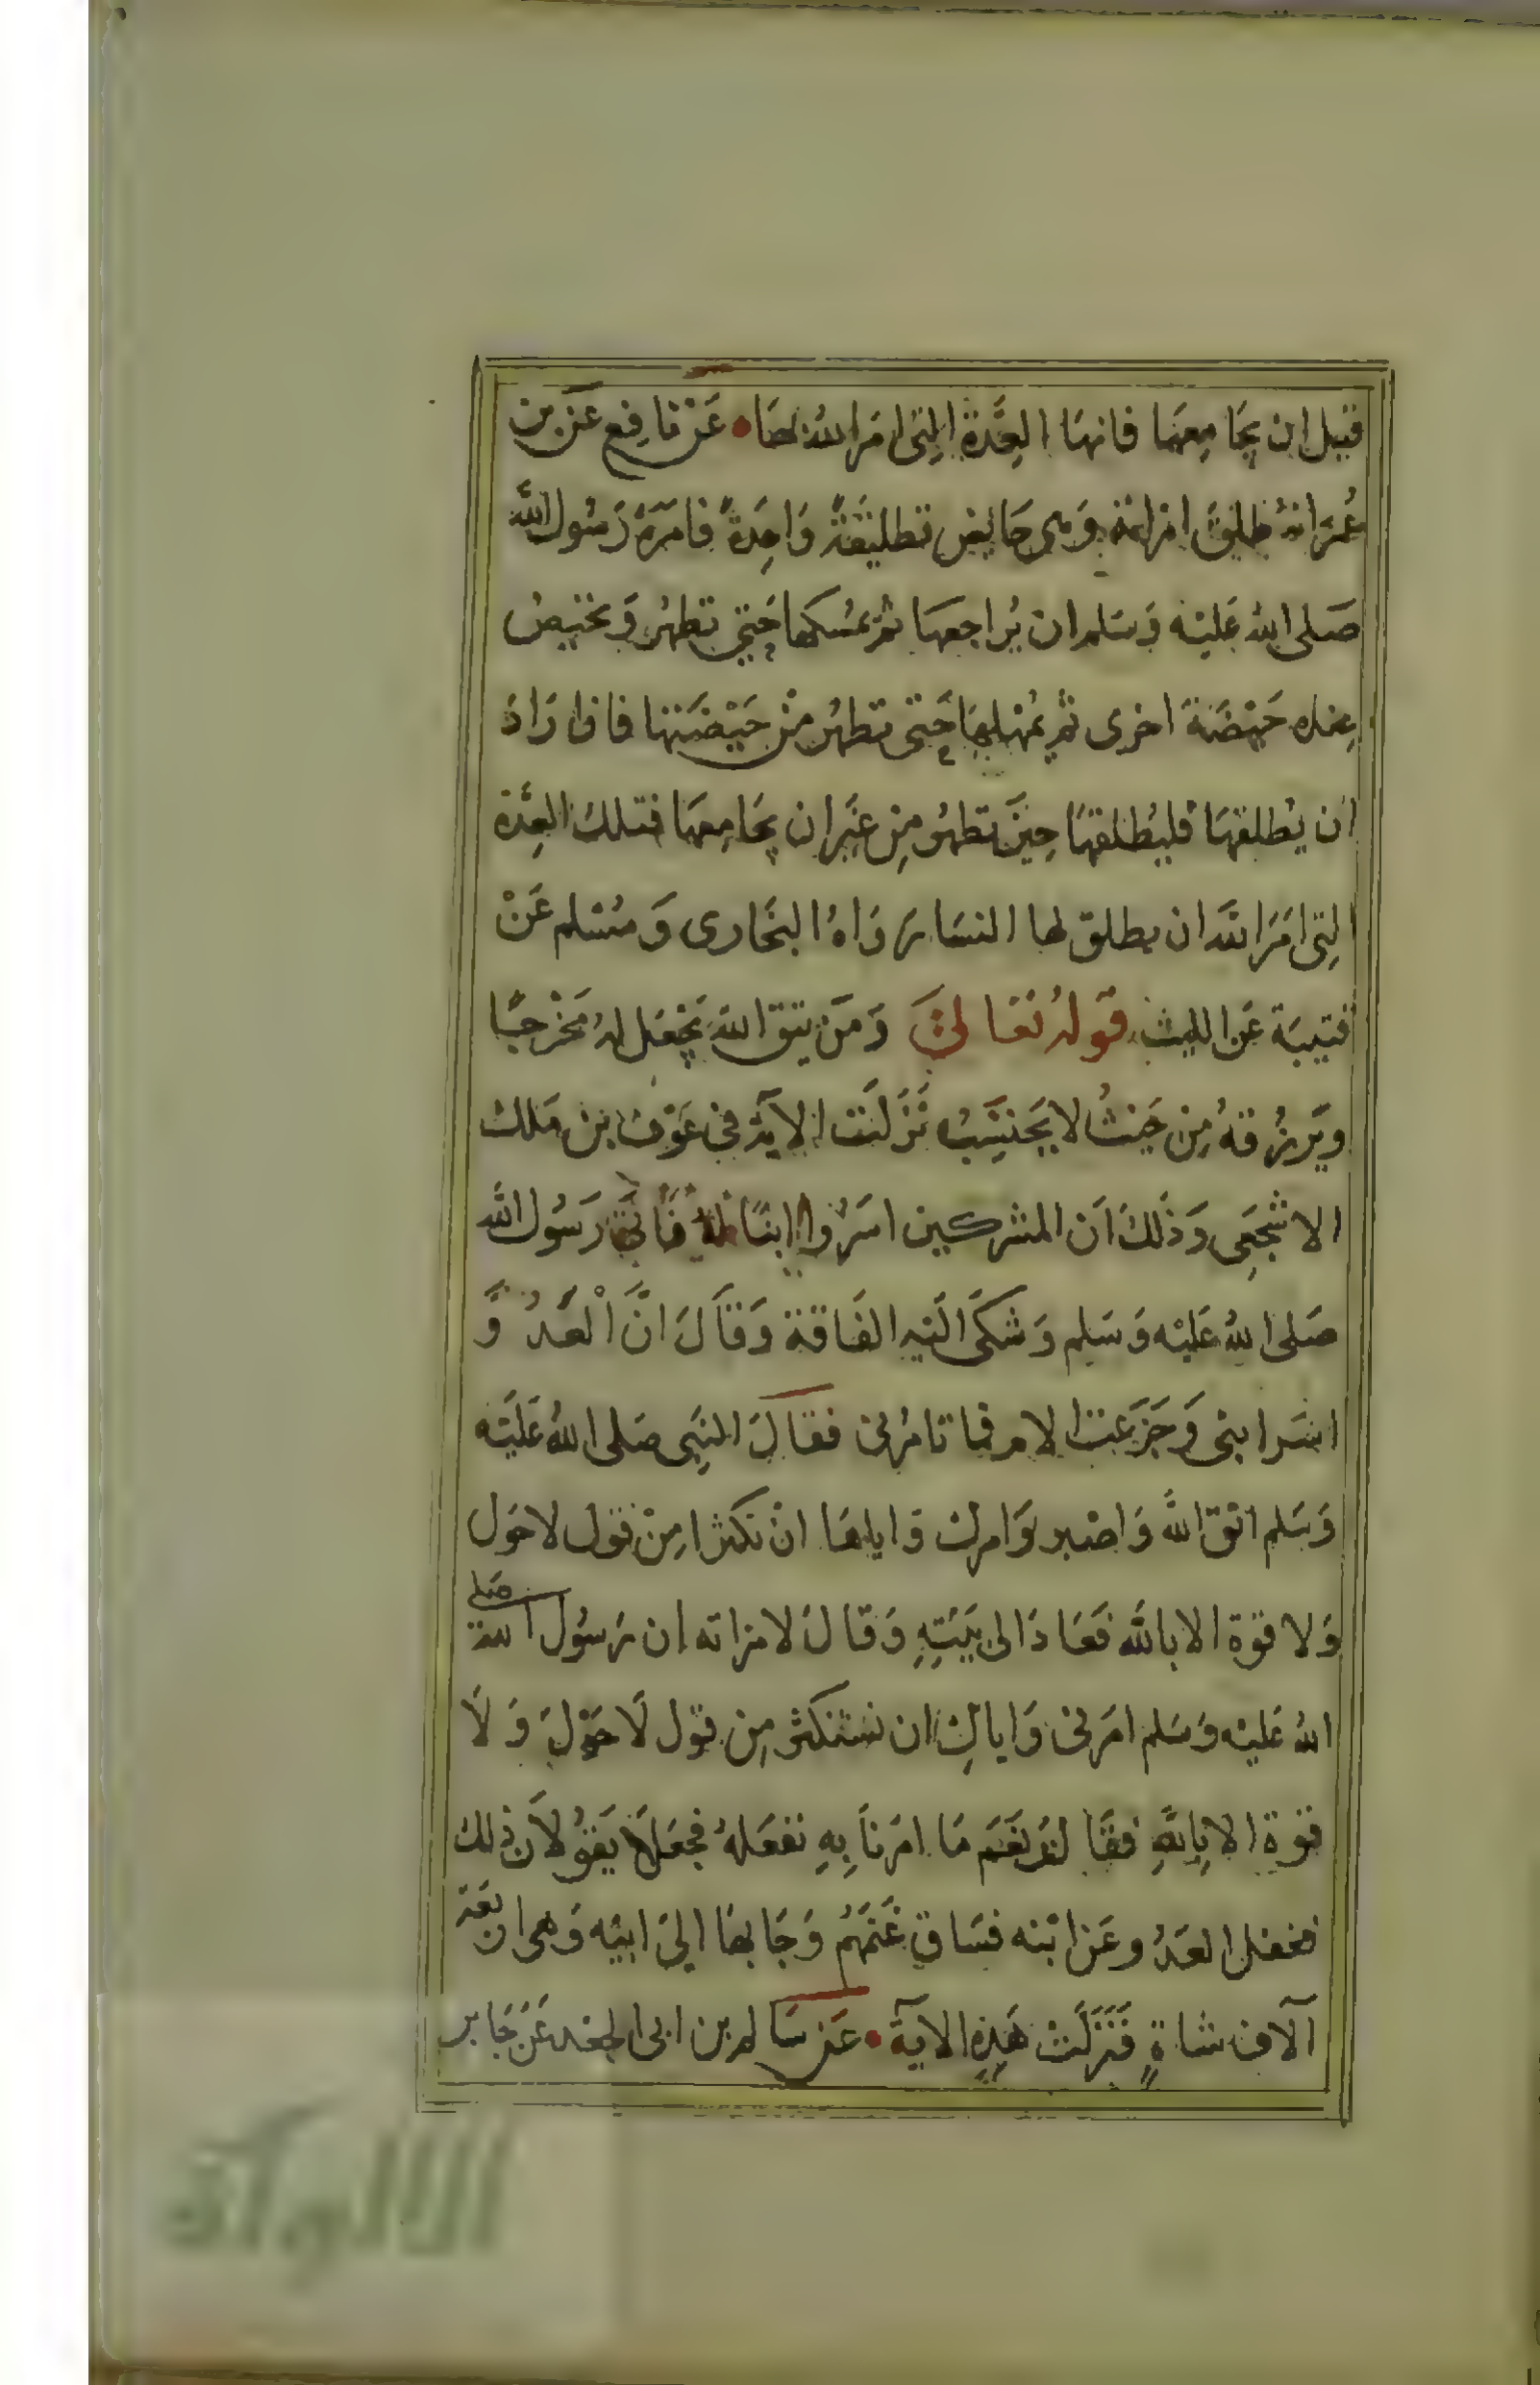 قبل ان يجامعها فانها العدة التي امر الله لها عن نافع عن بن
عمر انه طلق امراته وهي حايض تطليقة واحدة فامره رسول الله
صلى الله عليه وسلم ان يراجعها ثم يمسكها حتى تطهر وتحيض
عنده حيضة اخرى ثم يمهلها حتى تطهر من حيضتها فاذا راد
ان يطلقها فليطلقها حين تطهر من غير ان يجامعها فتلك العدة
لتي امر الله ان يطلق لها النسا رواه البخارى ومسلم عن
قتيبة عن الليث قوله تعالى ومن يتق الله يجعل له مخرجا
ويرزقه من حيث لا يحتسب نزلت الاية في عوف بن ملك
الاشجعي وذلك ان المشركين اسروا ابنا له فاتى رسول الله
صلى الله عليه وسلم وشكى اليه الفاقة وقال ان العدو
اسر ابني وجزعت الام فما تامرنى فقال النبي صلى الله عليه
وسلم اتق الله واصبر وامرك واياها ان تكثرا من قول لا حول
ولا قوة الا بالله فعاد الى بيته وقال لامراته ان رسول الله صلى
الله عليه وسلم امرنى واياك ان نستكثر من قول لا حول ولا
قوة الا بالله فقالت نعم ما امرنا به نفعله فجعلا يقولان ذلك
فغفل العدو عن ابنه فساق غنمهم وجا بها الى ابيه وهى اربعة
آلاف شاة فنزلت هذه الاية عن سالم بن ابى الجعد عن جابر
الألوكة